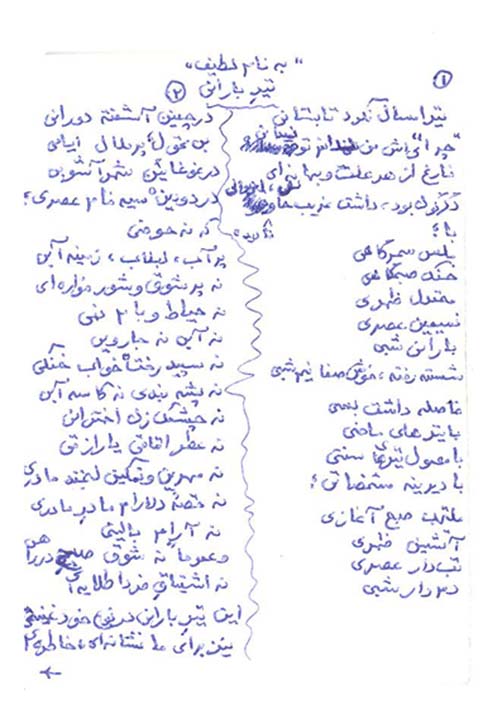 "به نام لطیف"
تیر بارانی
۱
تیر امسال نبود تابستانی
"چرا"ئی‌اش من ندانم تو
فارغ از هر علت و بهانه‌ای
دگرگون بود، داشت غریب
با:
یلس سحرگاهی
خنک صبحگاهی
معتدل ظهری
نسیمین عصری
بارانی شبی
شسته رفته، خوش صفا نیم شبی
فاصله داشت بسی
با تیرهای ماضی
با معمول تیرهای سنتی
با دیرینه مشخصاتی؛
ملتهب صبح آغازی
آتشین ظهری
تب‌دار عصری
دم‌دار شبی
۲
در چنین آشفته دورانی
بی تحول، پر ملال ایامی
در غوغایی شهر آشوبی
در دودین سیه فام عصری؛
که نه حوضی
پر آب، لبالب، زمینه آبی
نه پر شوق و شور فواره‌ای
نه حیاط و بامی
نه آبی نه جارویی
نه سپید رختخواب خنکی
نه پشه بندی نه کاسه آبی
نه چشمک زن اخترانی
نه عطر اقاقی یا رازقی
نه مهرین و نمکین لبخند مادری
نه قصه دلارام مادر مادری
نه آرام بالینی
و عموما نه شوق صلح در راهی
نه اشتیاق فردا طلایه‌ای
این تیر بارانی در نوع خود غنیمتی
یعنی برای ما نشانه‌ای، خاطره‌ای